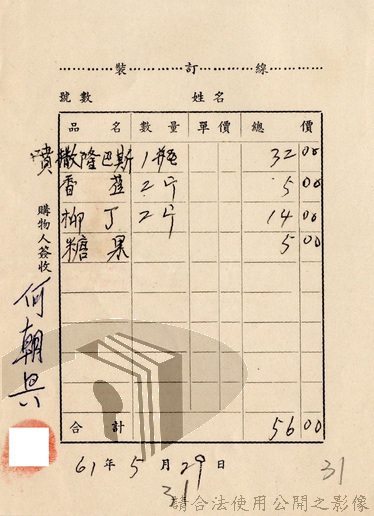 裝訂線
號數 姓名
品名 數量 單價 總價
噴撒隆巴斯 1瓶 32 00
香蕉 2斤 5 00
柳丁 2斤 14 00
糖果 5 00
合計 56 00
購物人簽收 何朝興
61年5月29日
31
31
請合法使用公開之影像